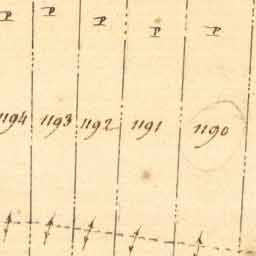 P P P P P
1194 1193 1192 1191 1190